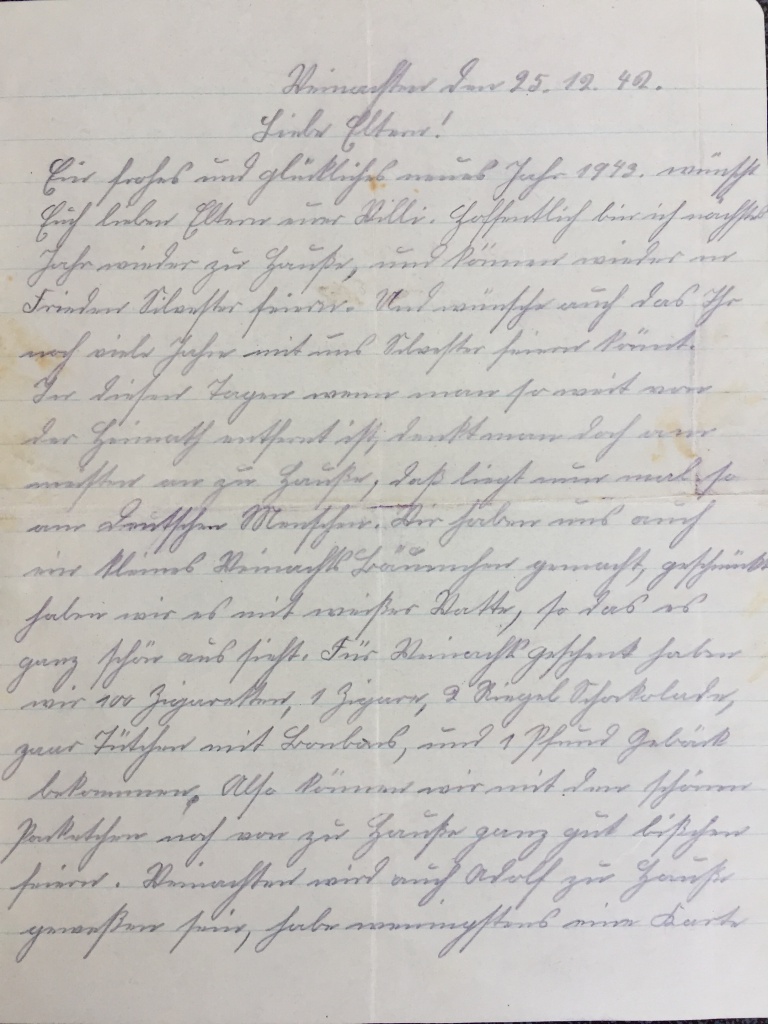 Weinachten den 25. 12. 42.
Liebe Eltern!
Ein frohes und glückliches neues Jahr 1943. wünscht
Euch lieben Eltern euer Willi. Hoffentlich bin ich nächstes
Jahr wieder zu Hauße, und können wieder in
Frieden Silvester feiern. Und wünsche auch das Ihr
noch viele Jahre mit uns Silvester feiern könnt.
In diesen Tagen wenn man so weit von
der Heimath entfernt ist, denkt man doch am
meisten an zu Hauße, daß liegt nun mal so
am Deutschen Menschen. Wir haben uns auch
ein kleines Weinachts Bäumchen gemacht, geschmückt
haben wir es mit weißer Watte, so das es
ganz schön aus sieht. Für Weinachtsgeschenk haben
wir 100 Zigaretten, 1 Zigarre, 2 Riegel Schockolade,
paar Tütchen mit Bonbons, und 1 Pfund Gebäck
bekommen. Also können wir mit den schönen
Packetchen noch von zu Hauße ganz gut bißchen
feiern. Weinachten wird auch Adolf zu Hauße
geweßen sein, habe wenigstens eine Karte